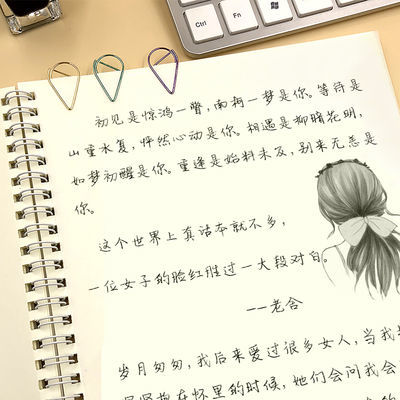 Ctrl
Fn
初见是惊鸿一瞥，南柯一梦是你。等待是
山重水复，怦然心动是你。相遇是柳暗花明，
如梦初醒是你。重逢是始料未及，别来无恙是
你。
这个世界上真话本就不多，
一位女子的脸红胜过一大段对白。
——老舍
岁月匆匆，我后来爱过很多女人，当我
在怀里的时候，她们会问我会